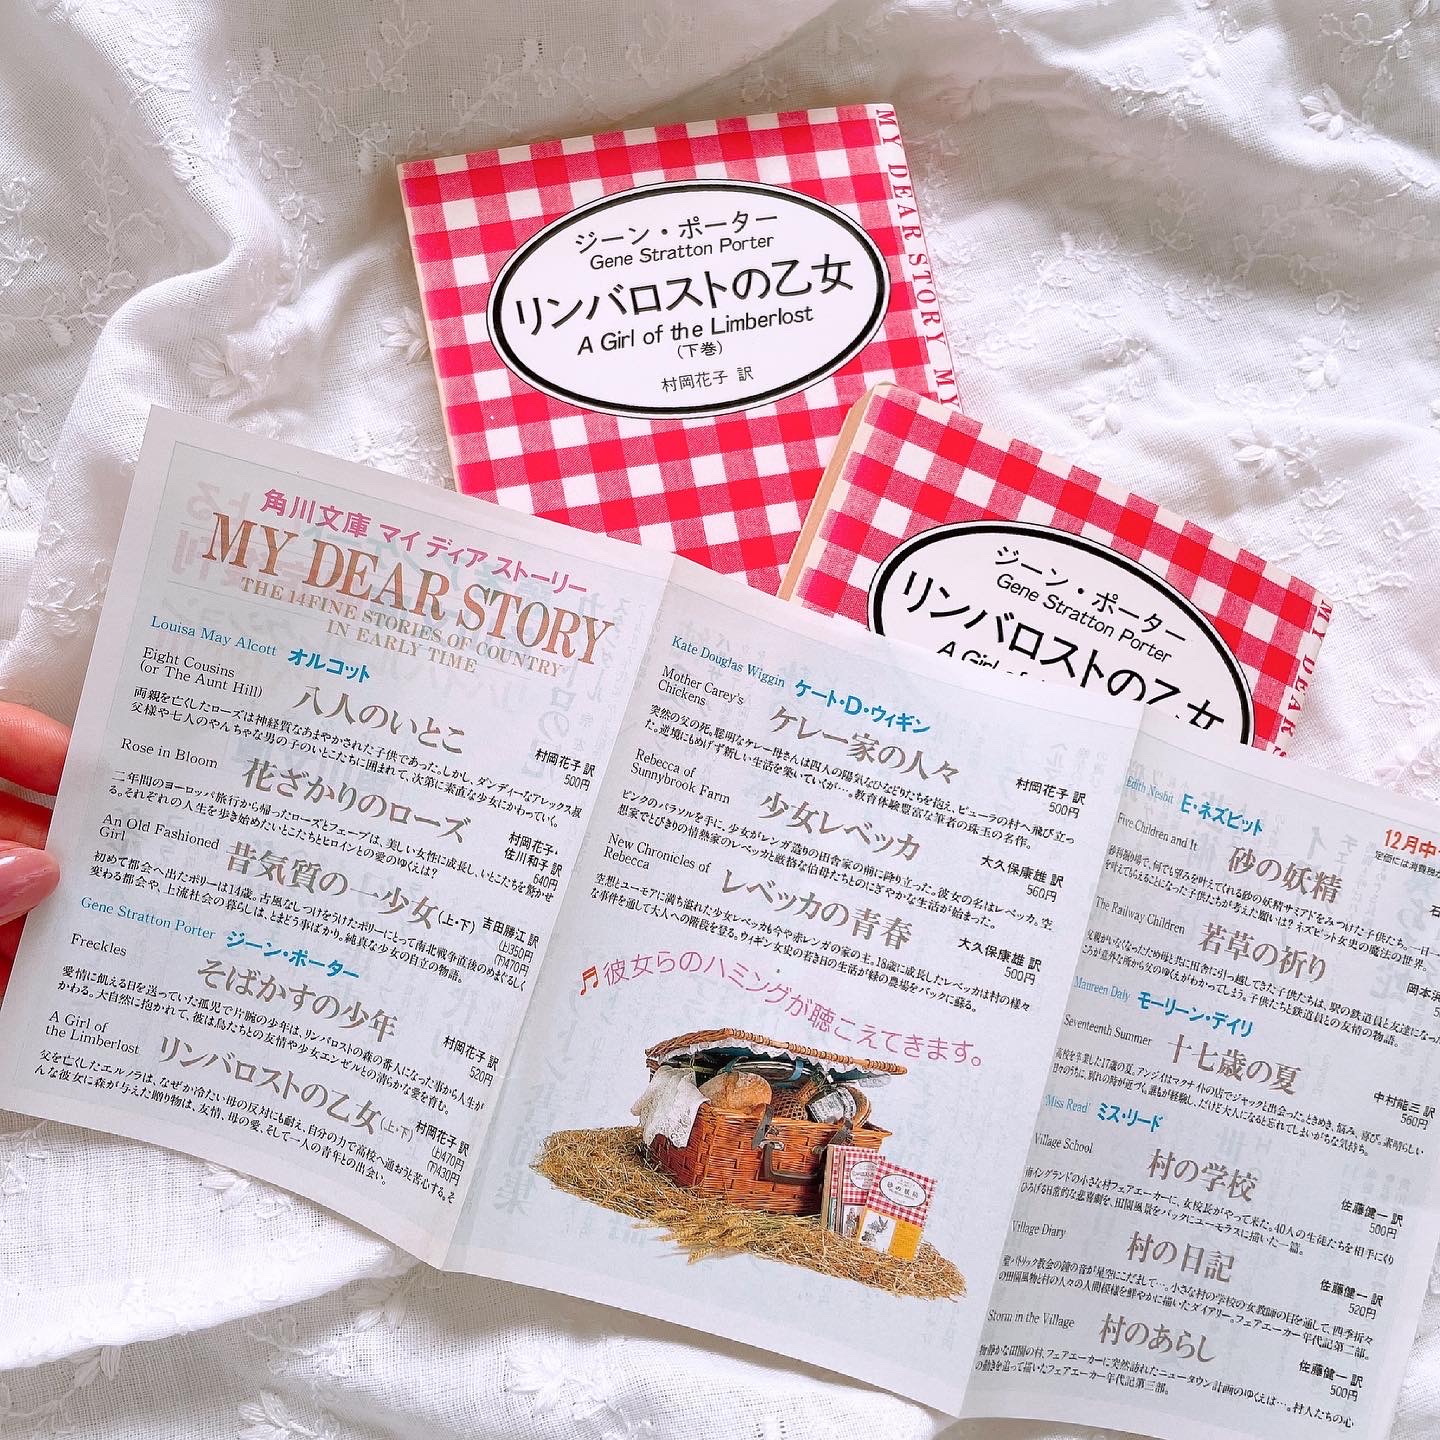 ジーン・ポーター
Gene Stratton Porter
リンバロストの乙女
A Girl of the Limberlost
(下巻)
村岡花子 訳
MY DEAR STORY MY
ジーン・ポーター
Gene Stratton Porter
リンバロストの乙女
A Girl of
MY DEAR S
角川文庫 マイ ディア ストーリー
MY DEAR STORY
THE 14FINE STORIES OF COUNTRY
IN EARLY TIME
Louisa May Alcott オルコット
Eight Cousins
(or The Aunt Hill)
八人のいとこ
村岡花子 訳
500円
両親を亡くしたローズは神経質なあまやかされた子供であった。しかし、ダンディーなアレックス叔
父様や七人のやんちゃな男の子のいとこたちに囲まれて、次第に素直な少女にかわっていく。
Rose in Bloom
花ざかりのローズ
村岡花子・
佐川和子 訳
640円
二年間のヨーロッパ旅行から帰ったローズとフェーブは、美しい女性に成長し、いとこたちを驚かせ
る。それぞれの人生を歩き始めたいとこたちとヒロインとの愛のゆくえは?
An Old Fashioned
Girl
昔気質の一少女(上・下)
吉田勝江 訳
(上)350円
(下)470円
初めて都会へ出たポリーは14歳。古風なしつけをうけたポリーにとって南北戦争直後のめまぐるしく
変わる都会や、上流社会の暮らしは、とまどう事ばかり。純真な少女の自立の物語。
Gene Stratton Porter ジーン・ポーター
Freckles
そばかすの少年
村岡花子 訳
520円
愛情に飢える日を送っていた孤児で片腕の少年は、リンバロストの森の番人になった事から人生が
かわる。大自然に抱かれて、彼は鳥たちとの友情や少女エンゼルとの清らかな愛を育む。
A Girl of
the Limberlost
リンバロストの乙女(上・下)
村岡花子 訳
(上)470円
(下)430円
父を亡くしたエルノラは、なぜか冷たい母の反対にも耐え、自分の力で高校へ通お苦心する。そ
んな彼女に森が与えた贈り物は、友情、母の愛、そして一人の青年との出会い。
Kate Douglas Wiggin ケート・D・ウィギン
Mother Carey's
Chickens
ケレー家の人々
村岡花子 訳
500円
突然の父の死。聡明なケレー母さんは四人の陽気なひなどりたちを抱え、ビューラの村へ飛び立っ
た。逆境にもめげず新しい生活を築いていくが…。教育体験豊富な筆者の珠玉の名作。
Rebecca of
Sunnybrook Farm
少女レベッカ
大久保康雄 訳
560円
ピンクのパラソルを手に、少女がレンガ造りの田舎家の前に降り立った。彼女の名はレベッカ。空
想家でとびきりの情熱家のレベッカと厳格な伯母たちとのにぎやかな生活が始まった。
New Chronicles of
Rebecca
レベッカの青春
大久保康雄 訳
500円
空想とユーモアに満ち溢れた少女レベッカも今や赤レンガの家の主。18歳に成長したレベッカは村の様々
な事件を通して大人への階段を登る。ウィギン女史の若き日の生活が緑の農場をバックに蘇る。
彼女らのハミングが聴こえてきます。
砂の妖精
Edith Nesbit E・ネズビット
12月中
Five Children and It
砂の妖精
砂利掘り場で、何でも望みを叶えてくれる砂の妖精サミアドをみつけた子供たち。一日一
を叶えてもらえることになった子供たちが考えた願いは? ネズビット女史の魔法の世界。
The Railway Children
若草の祈り
岡本浜
父親がいなくなったため母と共に田舎に引っ越してきた子供たちは、駅の鉄道員と友達になった
ころが意外な所から父のゆくえがわかってしまう。子供たちと鉄道員との友情の物語。
Maureen Daly モーリーン・デイリ
Seventeenth Summer
十七歳の夏
中村能三 訳
560円
高校を卒業した17歳の夏。アンジイはマクナイトの店でジャックと出会った。ときめき、悩み、喜び。素晴らしい
日々のうちに、別れの時が近づく。誰もが経験し、だけど大人になると忘れてしまいがちな気持ち。
'Miss Read' ミス・リード
Village School
村の学校
佐藤健一 訳
500円
南イングランドの小さな村フェアエーカーに、女校長がやって来た。40人の生徒たちを相手にくり
ひろげる日常的な悲喜劇を、田園風景をバックにユーモラスに描いた一篇。
Village Diary
村の日記
佐藤健一 訳
520円
小さな村の学校の女教師の目を通して、四季折々
の田園風物と村の人々の人間模様を鮮やかに描いたダイアリー。フェアエーカー年代記第二部。
Storm in the Village
村のあらし
佐藤健一 訳
500円
物静かな田園の村、フェアエーカーに突然訪れたニュータウン計画のゆくえは…。村人たちの心
の動きを追って描いたフェアエーカー年代記第三部。